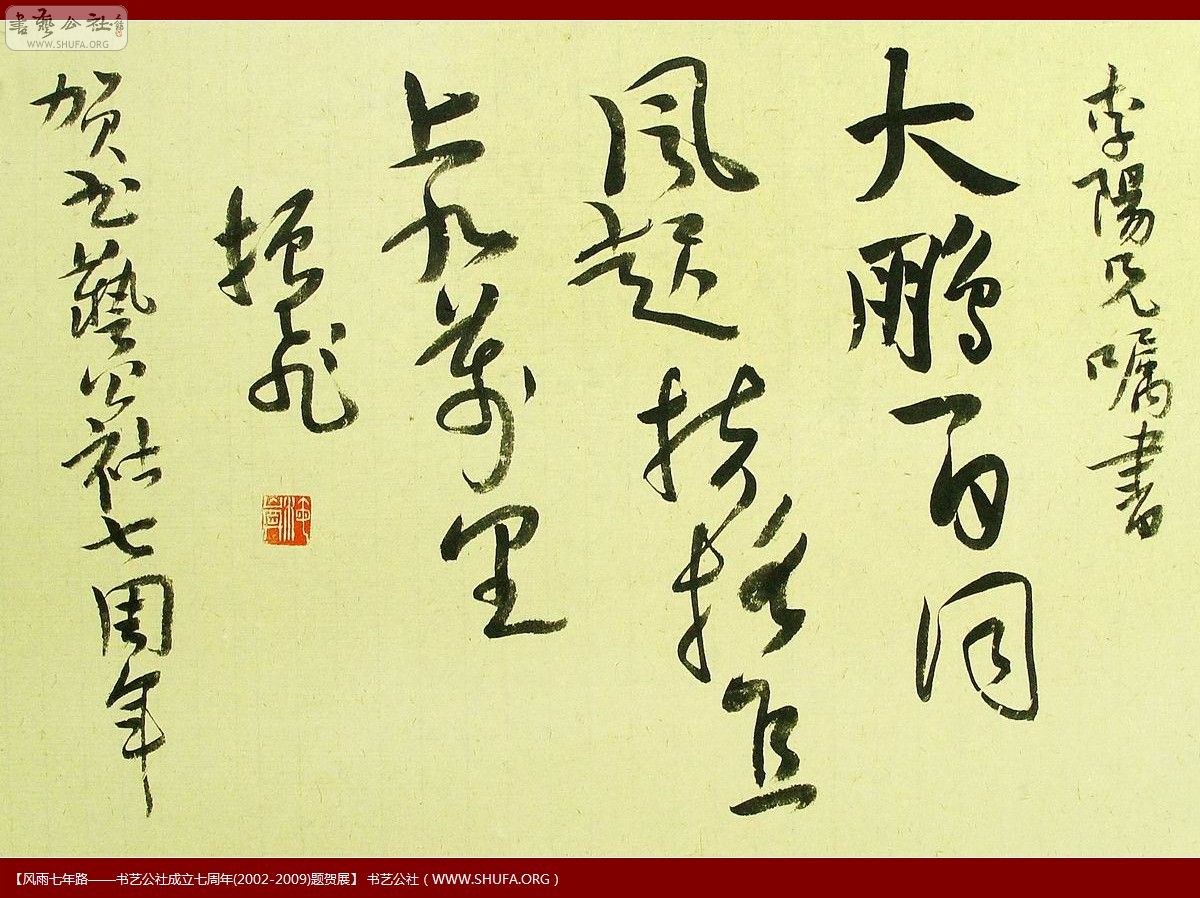 書藝公社
WWW.SHUFA.ORG
李陽兄嘱書
大鹏一日同
風起扶摇直
上九萬里
振飛
贺书藝公社七周年
【风雨七年路——书艺公社成立七周年(2002-2009)题贺展】 书艺公社（WWW.SHUFA.ORG）